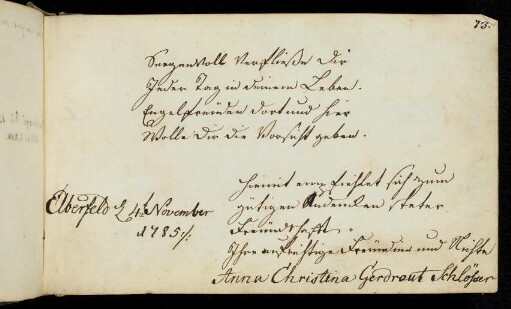 73.
Seegenvoll verfließe dir
Jeder Tag in deinem Leben.
Engelfreuden dort und hier
Wolle dir die Vorsicht geben.
hiermit empfiehlet sich zum
gütigen Andenken steter
Freündschafft.
Ihre aufrichtige Freündin und Nichte
Anna Christina Gerdraut Schlösser
Elberfeld d 4t November
1785 /: